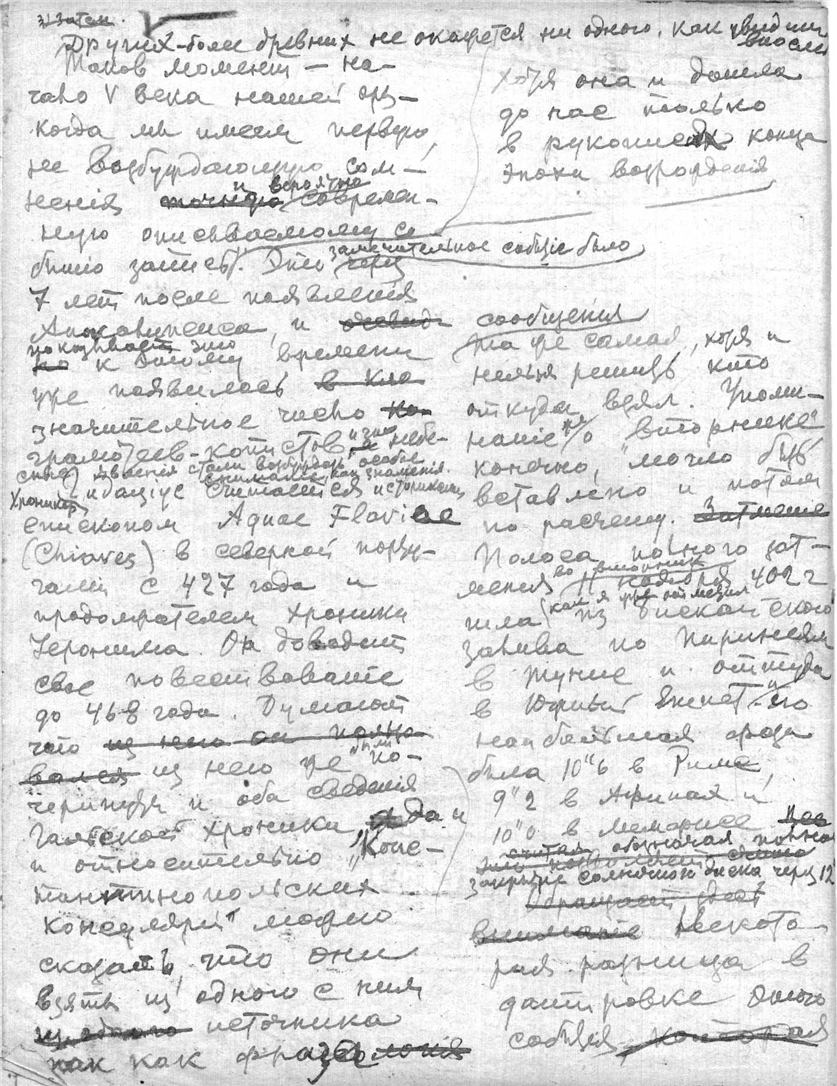 3) Затм.
Других более древних не окажется ни одного, как увидим
впосл
Таков момент — на-
чало V века нашей эры —
когда мы имеем первую,
не возбуждающую сом-
нения точную и вероятно современ-
ную описываемому со-
бытию запись. Это через замечательное событие было
7 лет после появления
Апокалипсиса, и очевид
показывает что
но к этому времени
уже появилось в кла
значительное число ко
грамотеев-копистов и не небе-
сные явления стали возбуждать особое
внимание, как знамения.
Хроникер Идациус считается историками
епископом Aquae Flaviae
(Chiaves) в северной Порту-
галии с 427 года и
продолжателем хроники
Иеронима. Он доводит
свое повествование
до 468 года. Думают
что из него он позна
вался из него уже были по-
черпнуты и оба сведения
Галльской хроники, да и
и относительно "Конс-
тантинопольских
консулярий" можно
сказать, что они
взяты из одного с ним
из одного источника
так как фразеология
Хотя она и дошла
до нас только
в рукописях конца
эпохи возрождения
сообщения
та же самая, хотя и
нельзя решить кто
откуда взял. Упоми-
нание же о "вторнике"
конечно, могло быть
вставлено и потом
по расчету. Затмение
Полоса полного зат-
мения во вторник 11 ноября 402 г
шла (как я уже отметил) из Бискайского
залива по Пиринеям
в Тунис и оттуда
в Южный Египет. Его
наибольшая фаза
была 10"6 в Риме,
9"2 в Афинах и
10"0 в Мемфисе
считая обозначая полное
закрытие солнечного диска через 12
Обращает здесь
внимание Некото-
рая разница в
датировке этого
события, которая